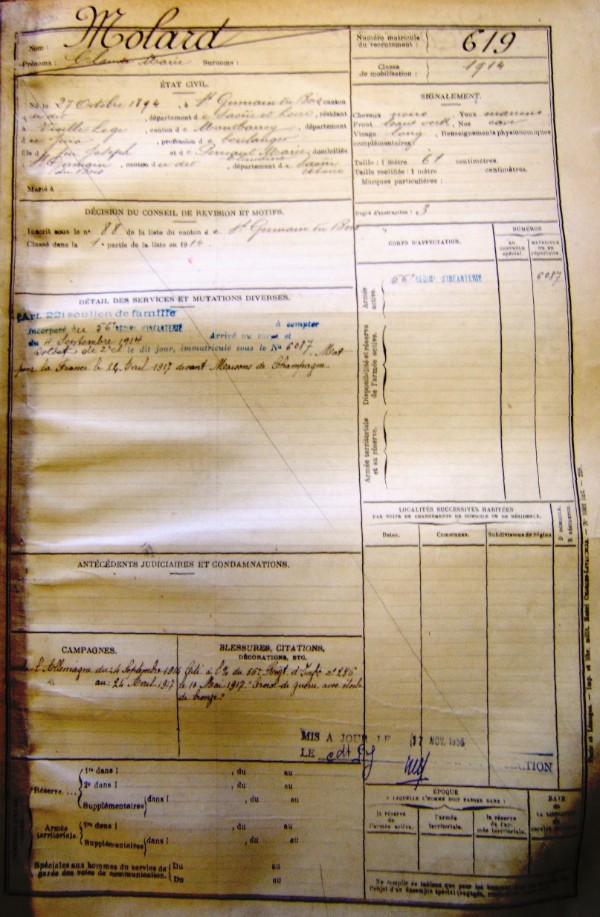 Nom : Molard
Prénoms : Claude Marie Surnoms :
Numéro matricule
du recrutement : 619
Classe
de mobilisation : 1914
ÉTAT CIVIL.
Né le 27 Octobre 1894, à St Germain du Bois, canton
du dit, département d e Saône et Loire, résidant
à Vieille Loye, canton d e Montbarrey, département
d u Jura, profession d e boulanger
fils d e feu Joseph et d e Marie Claudine, domiciliés
à St Germain du Bois, canton du dit, département d e Saône
Marié à
SIGNALEMENT.
Cheveux Yeux marrons
Front Nez cave
Visage long, Renseignements physionomiques
complémentaires :
Taille : 1 mètre 61 centimètres.
Taille rectifiée : 1 mètre centimètres.
Marques particulières :
Degré d'instruction : 3
DÉCISION DU CONSEIL DE REVISION ET MOTIFS.
Inscrit sous le n° 88 de la liste du canton d e St Germain du Bois
Classé dans la 1e partie de la liste en 1914
CORPS D'AFFECTATION.
NUMÉROS
AU CONTRÔLE spécial.
MATRICULE OU AU répertoire.
Armée active.
56e RÉGIMT D'INFANTERIE 6087
Disponibilité et réserve de l'armée active.
Armée territoriale et sa réserve.
DÉTAIL DES SERVICES ET MUTATIONS DIVERSES.
(Art. 22) soutien de famille
Incorporé au 56e RÉGIMT D'INFANTERIE à compter
du 4 Septembre 1914 Arrivé au corps et
Soldat de 2e cl le dit jour, immatriculé sous le No 6087. Mort
pour la France le 24 Avril 1917 devant Maisons de Champagne
LOCALITÉS SUCCESSIVES HABITÉES
PAR SUITE DE CHANGEMENTS DE DOMICILE OU DE RÉSIDENCE.
Dates. Communes. Subdivisions de région D. DOMICILE. R. RÉSIDENCE.
ANTÉCÉDENTS JUDICIAIRES ET CONDAMNATIONS.
CAMPAGNES.
c. l'Allemagne du 4 Septembre 1914
au 24 Avril 1917
BLESSURES, CITATIONS,
DÉCORATIONS, ETC.
Cité à l'O. du 56e Regt d'Infie n° 286
le 10 Mai 1917. Croix de guerre avec étoile
de bronze.
MIS A JOUR LE 17 NOV. 1936
LE
Réserve
1re dans l , du au
2e dans l , du au
Supplémentaires dans l , du au
Armée territoriale.
1re dans l , du au
Supplémentaires dans l , du au
Spéciales aux hommes du service de
garde des voies de communication.
Du au
Du au
ÉPOQUE
A LAQUELLE L'HOMME DOIT PASSER DANS :
la réserve de l'armée active.
l'armée territoriale.
la réserve de l'armée territoriale.
DATE DE LA LIBÉRATION
Ne remplir ce tableau que pour les hommes